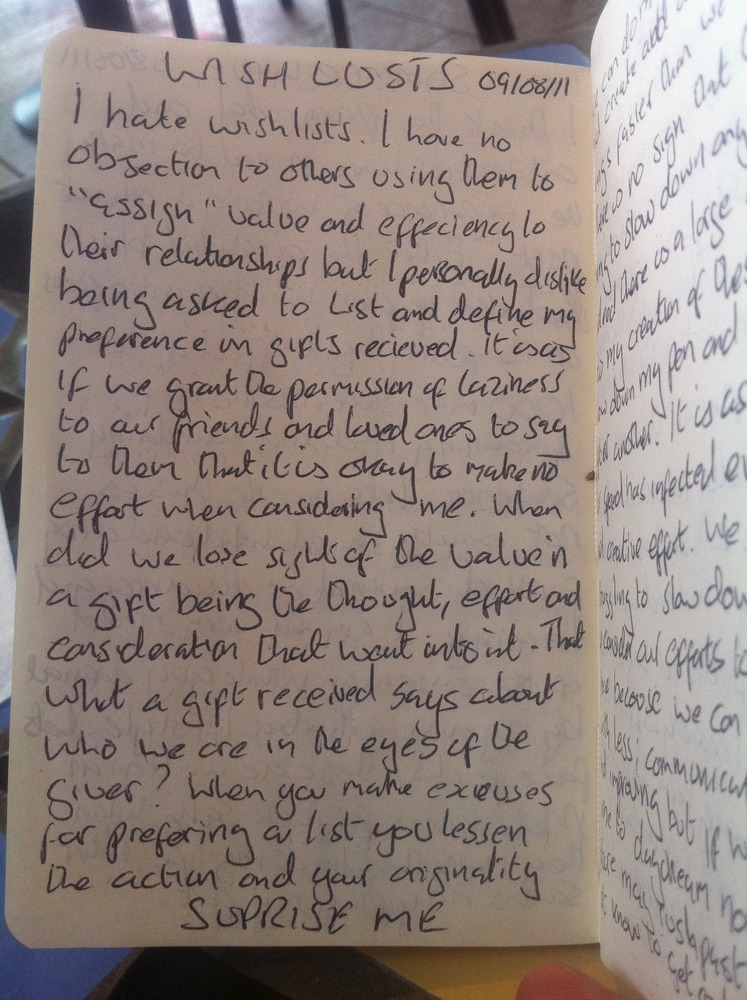 WISH LOSTS 09/08/11
I hate wishlists. I have no
objection to others using them to
"assign" value and effeciency to
their relationships but I personally dislike
being asked to List and define my
preference in gifts recieved. It is as
if we grant the permission of laziness
to our friends and loved ones to say
to them that it is okay to make no
effort when considering me. When
did we lose sights of the value in
a gift being the thought, effort and
consideration that went into it. That
what a gift received says about
who we are in the eyes of the
giver? When you make excuses
for prefering a list you lessen
the action and your originality
SUPRISE ME
can do
create add
faster than we
is no sign that
to slow down any
there is a large
my creation of
down my pen and
another. It is as
speed has infected
creative effort. We
to slow down
consider our efforts to
because we can
less, communica
improving but if w
to daydream no
may
know to get